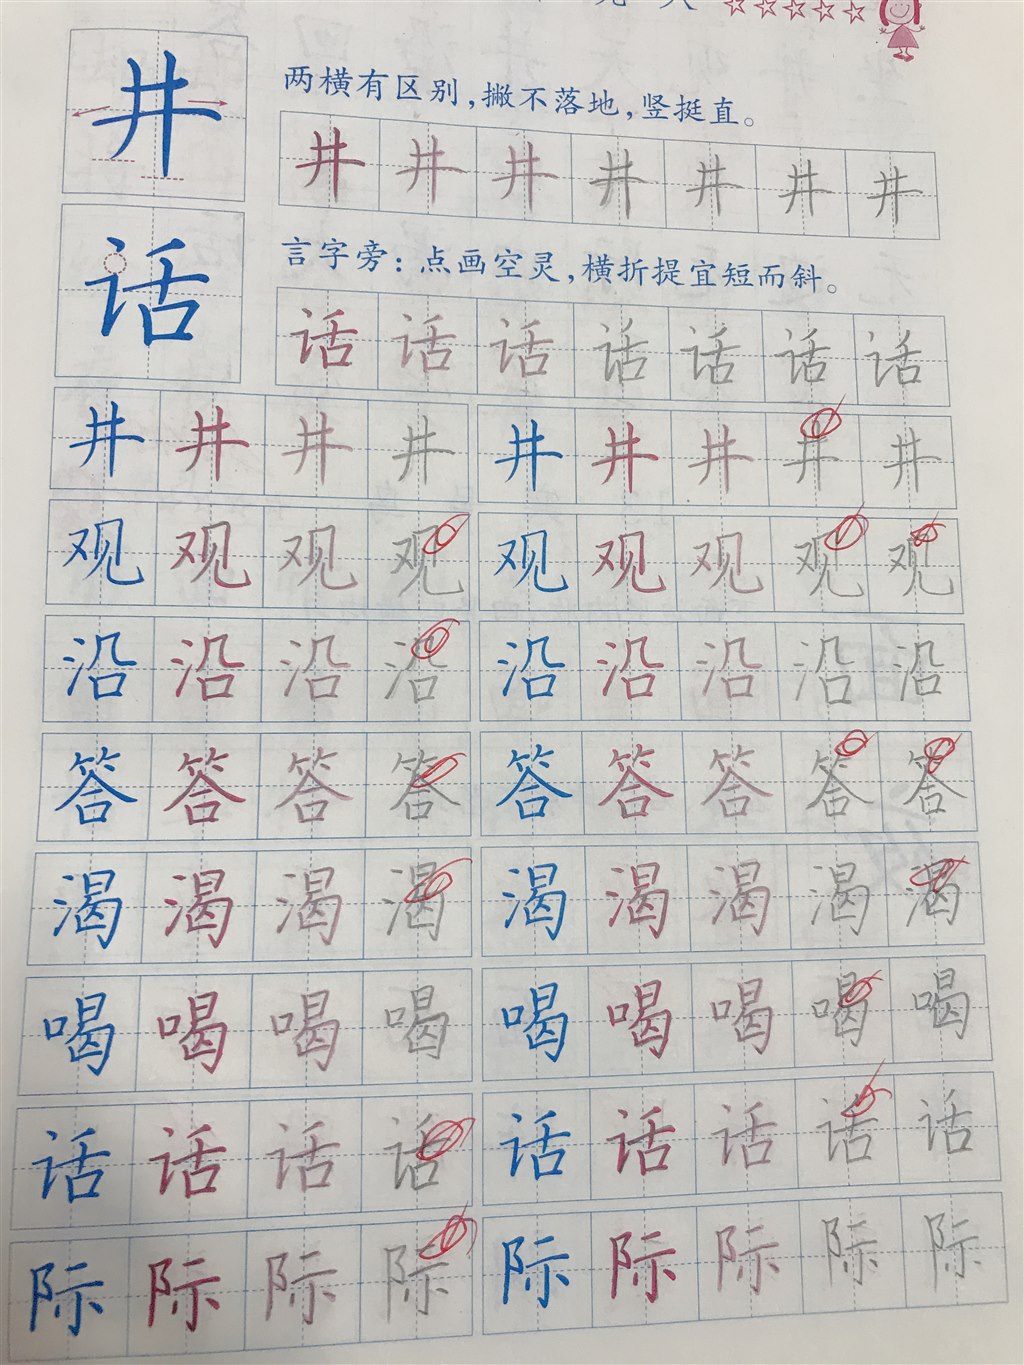 井 两横有区别，撇不落地，竖挺直。
井 井 井 井 井 井 井
话 言字旁：点画空灵，横折提宜短而斜。
话 话 话 话 话 话 话
井 井 井 井 井 井 井 井 井
观 观 观 观 观 观 观 观 观
沿 沿 沿 沿 沿 沿 沿 沿 沿
答 答 答 答 答 答 答 答 答
渴 渴 渴 渴 渴 渴 渴 渴 渴
喝 喝 喝 喝 喝 喝 喝 喝 喝
话 话 话 话 话 话 话 话 话
际 际 际 际 际 际 际 际 际